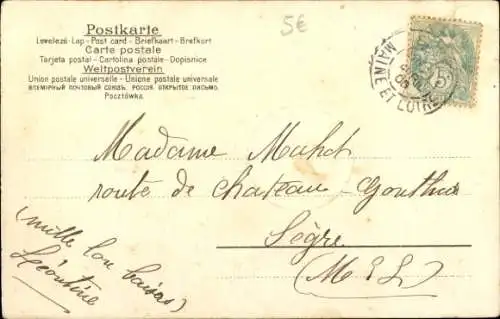 Postkarte
Levelező-Lap - Post card - Briefkaart - Brefkort
Carte postale
Tarjeta postal - Cartolina postale - Dopisnice
Weltpostverein
Union postale universelle - Unione postale universale
ВСЕМІРНЫЙ ПОЧТОВЫЙ СОЮЗЪ. РОССІЯ. ОТКРЫТОЕ ПИСЬМО.
Pocztówka.
5€
5c
MAINE ET LOIRE
Madame Mahot
route de Chateau-Gonthier
Segré
(M & L)
(mille bon baisers)
Léontine